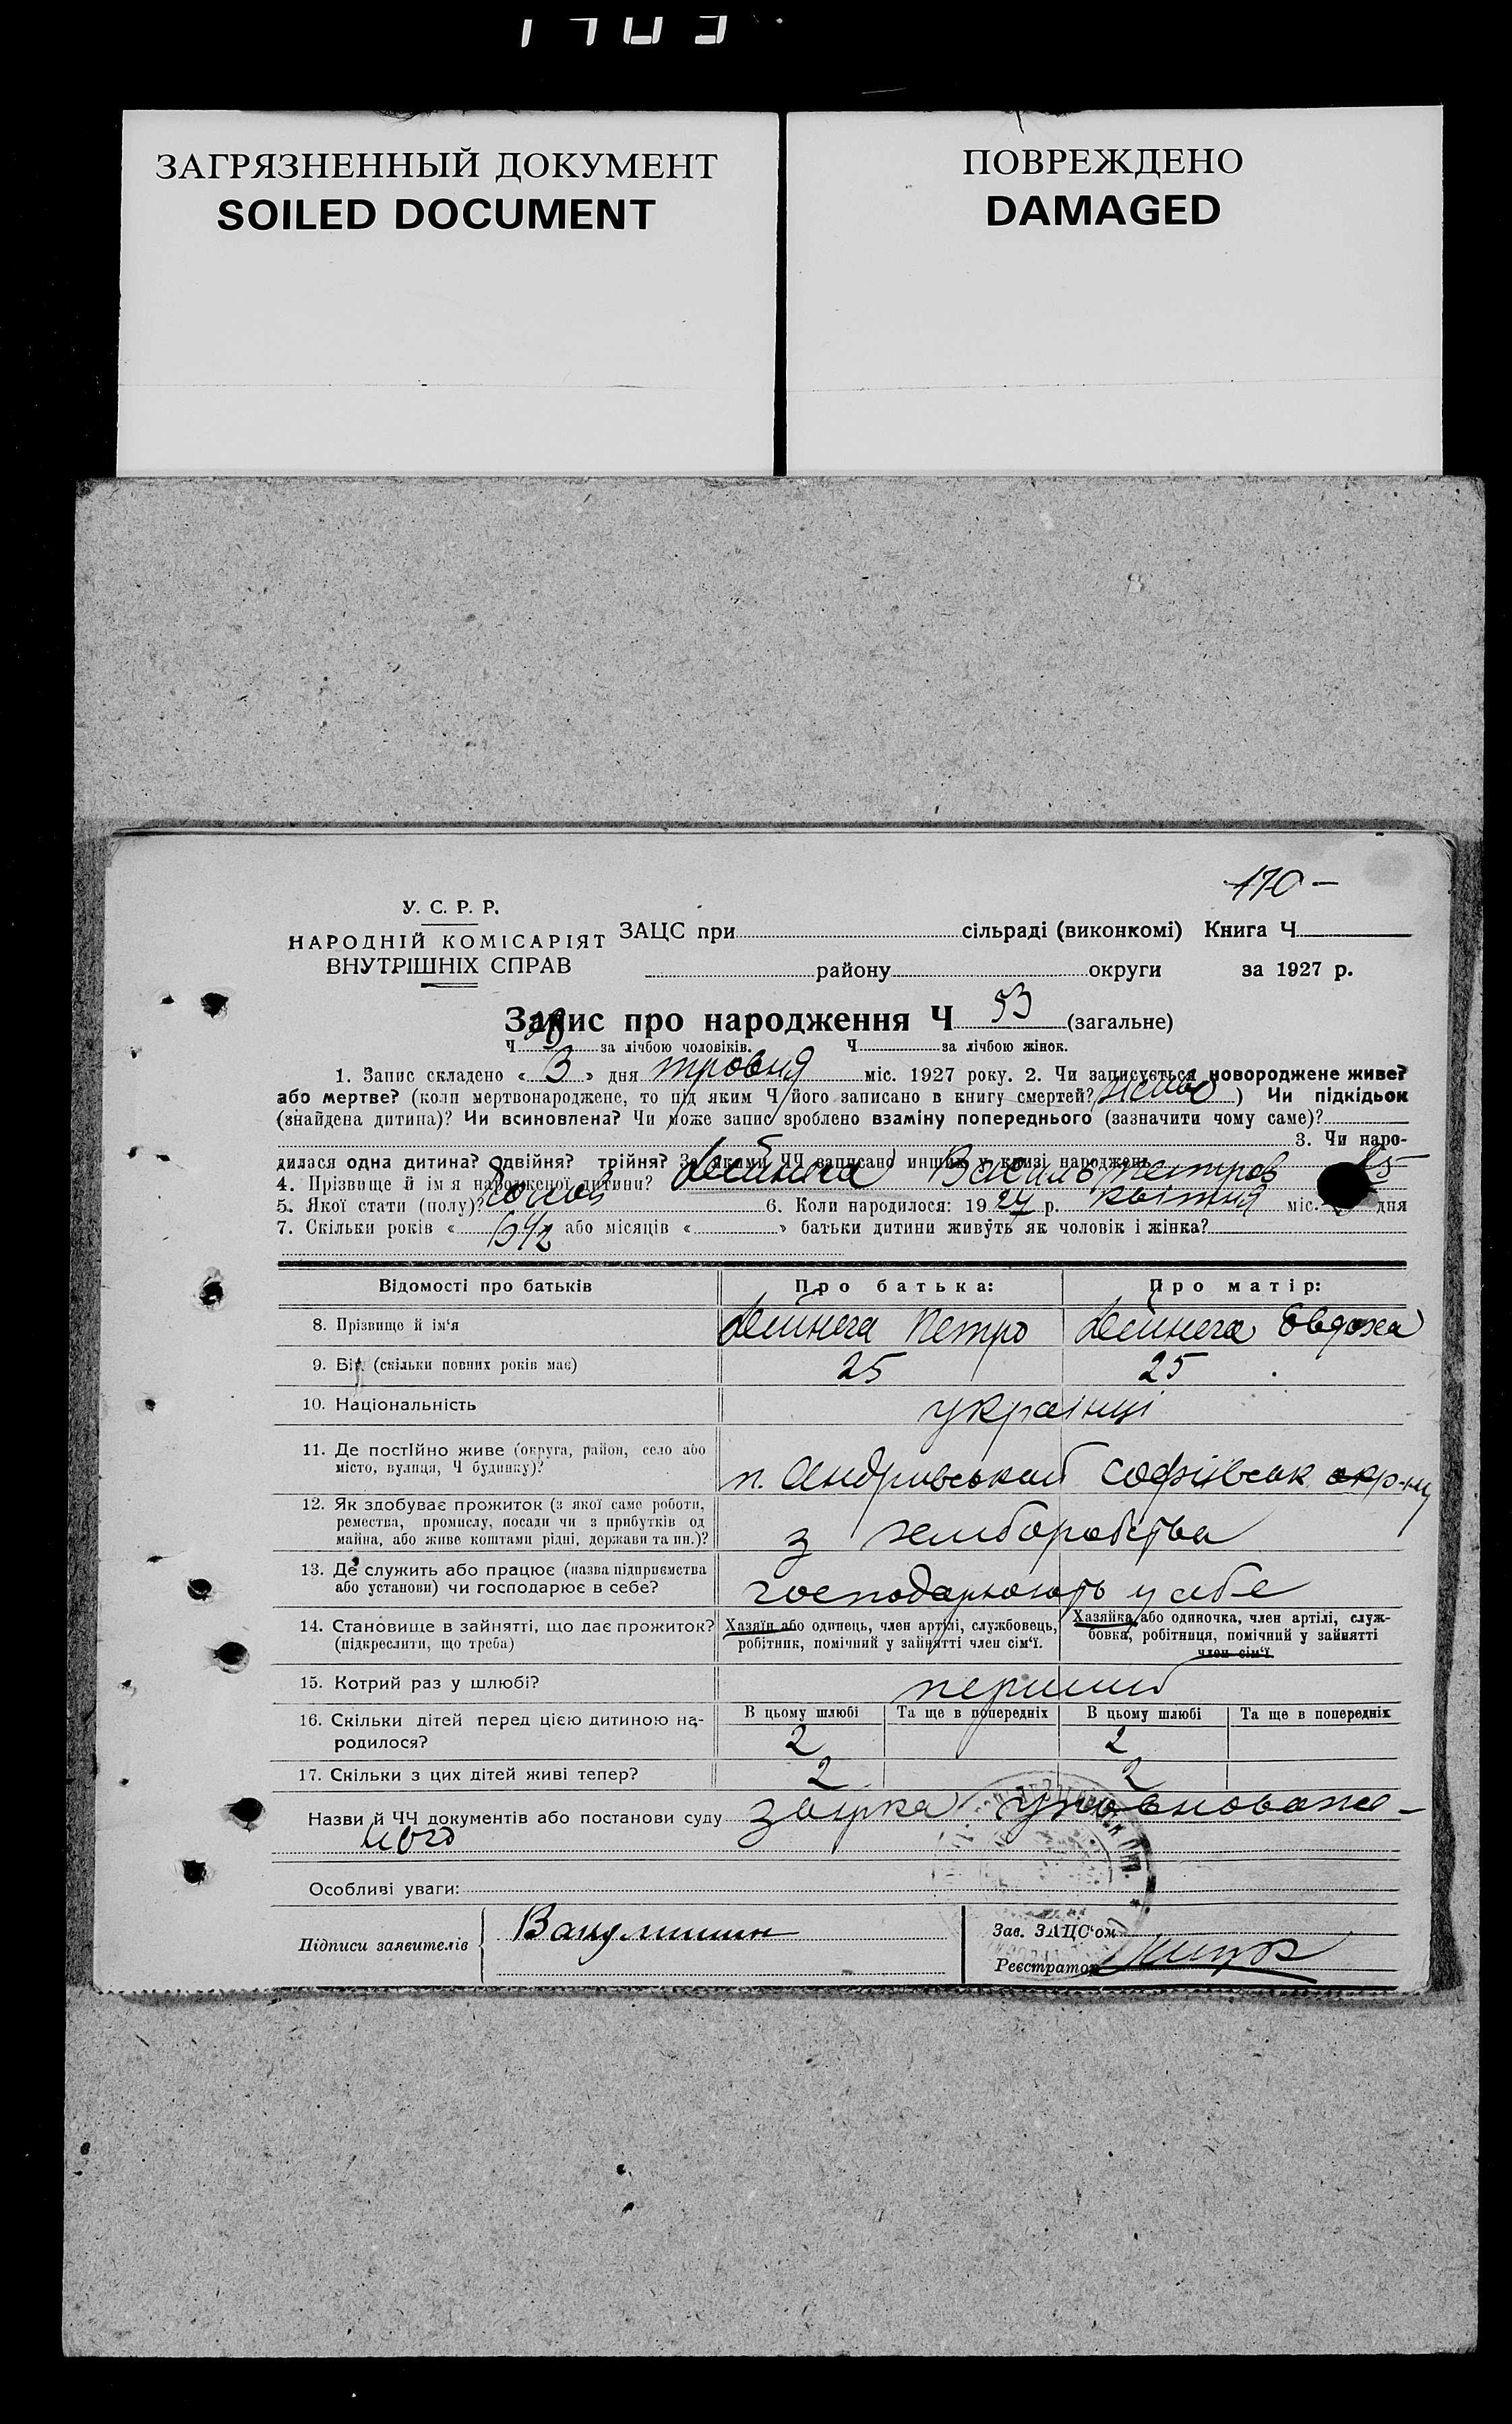 ЗАГРЯЗНЕННЫЙ ДОКУМЕНТ
SOILED DOCUMENT
ПОВРЕЖДЕНО
DAMAGED
170 –
У. С. Р. Р.
НАРОДНІЙ КОМІСАРІЯТ
ВНУТРІШНІХ СПРАВ
ЗАЦС при сільраді (виконкомі) Книга Ч
району округи за 1927 р.
Запис про народження Ч 53 (загальне)
Ч за лічбою чоловіків. Ч за лічбою жінок.
1. Запис складено « 3 » дня травня міс. 1927 року. 2. Чи записується новороджене живе?
або мертве? (коли мертвонароджене, то під яким Ч його записано в книгу смертей? живе ) Чи підкідьок
(знайдена дитина)? Чи всиновлена? Чи може запис зроблено взаміну попереднього (зазначити чому саме)?
3. Чи наро-
дилася одна дитина? двійня? трійня? За якими ЧЧ записано инших у книзі народжень
4. Прізвище й ім'я народженої дитини? Дейнега Василь Петров
5. Якої стати (полу)? 6. Коли народилося: 1927 р. квітня міс. 25 дня
7. Скільки років « або місяців « » батьки дитини живуть як чоловік і жінка?
Відомості про батьків Про батька: Про матір:
8. Прізвище й ім'я Дейнега Петро Дейнега Евдоха
9. Вік (скільки повних років має) 25 25
10. Національність українці
11. Де постійно живе (округа, район, село або
місто, вулиця, Ч будинку)?
Софіївськ
12. Як здобуває прожиток (з якої саме роботи,
ремества, промислу, посади чи з прибутків од
майна, або живе коштами рідні, держави та ин.)?
з хемборобства
13. Де служить або працює (назва підприємства
або установи) чи господарює в себе?
господарюють у себе
14. Становище в зайнятті, що дає прожиток?
(підкреслити, що треба)
Хазяїн або одинець, член артілі, службовець,
робітник, помічний у зайнятті член сім'ї.
Хазяйка або одиночка, член артілі, служ-
бовка, робітниця, помічний у зайнятті
член сім'ї.
15. Котрий раз у шлюбі? перший
16. Скільки дітей перед цією дитиною на-
родилося?
В цьому шлюбі Та ще в попередніх В цьому шлюбі Та ще в попередніх
2 2
17. Скільки з цих дітей живі тепер? 2 2
Назви й ЧЧ документів або постанови суду зацрка уповноваже-
ного
Особливі уваги:
Підписи заявителів
Зав. ЗАЦС'ом
Реєстратор